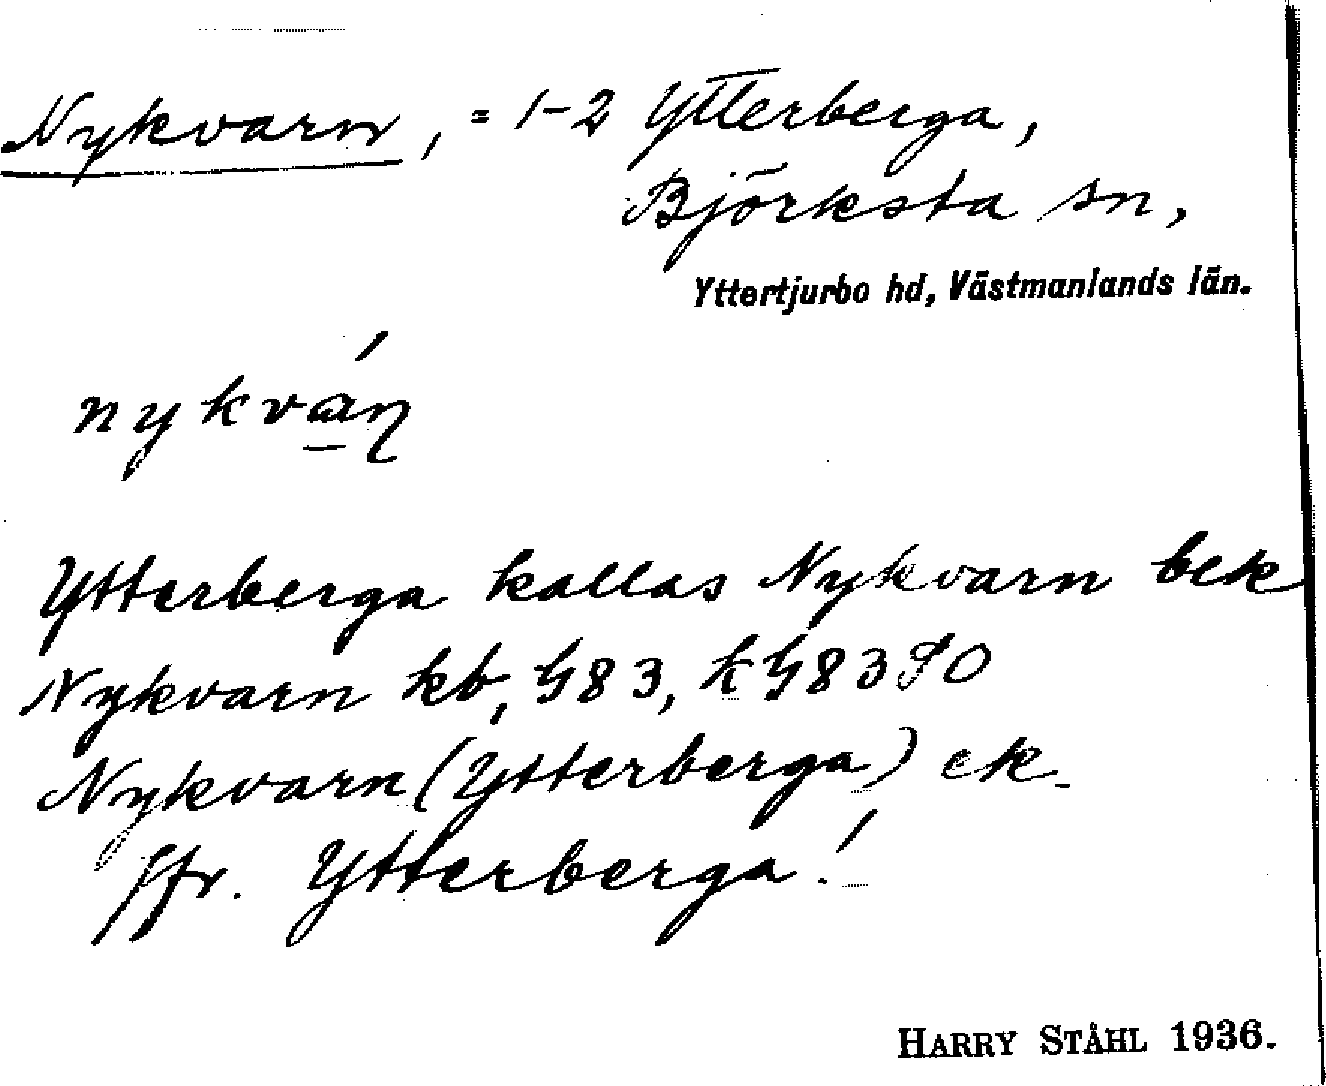 Nykvarn, = 1-2 Ytterberga,
Björksta sn,
Yttertjurbo hd, Västmanlands län.
nykván
Ytterberga kallas Nykvarn bek
Nykvarn kb, G83, k G83 SO
Nykvarn (Ytterberga) ek
Jfr. Ytterberga!
HARRY STÅHL 1936.